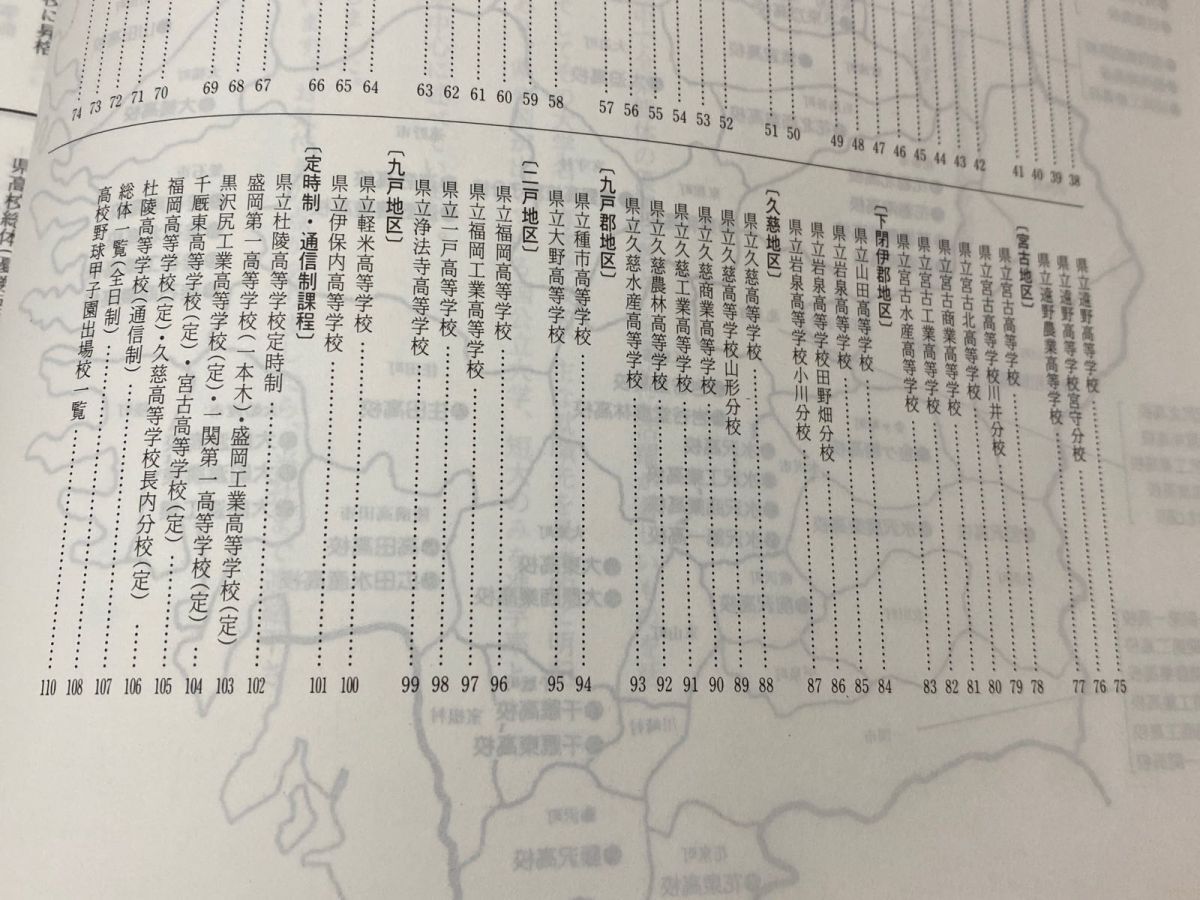 38
39
40
41
42
43
44
45
46
47
48
49
50
51
52
53
54
55
56
57
58
59
60
61
62
63
64
65
66
67
68
69
70
71
72
73
74
県立遠野高等学校 75
県立遠野高等学校宮守分校 76
県立遠野農業高等学校 77
〔宮古地区〕
県立宮古高等学校 78
県立宮古高等学校川井分校 79
県立宮古北高等学校 80
県立宮古商業高等学校 81
県立宮古工業高等学校 82
県立宮古水産高等学校 83
〔下閉伊郡地区〕
県立山田高等学校 84
県立岩泉高等学校 85
県立岩泉高等学校田野畑分校 86
県立岩泉高等学校小川分校 87
〔久慈地区〕
県立久慈高等学校 88
県立久慈高等学校山形分校 89
県立久慈商業高等学校 90
県立久慈工業高等学校 91
県立久慈農林高等学校 92
県立久慈水産高等学校 93
〔九戸郡地区〕
県立種市高等学校 94
県立大野高等学校 95
〔二戸地区〕
県立福岡高等学校 96
県立福岡工業高等学校 97
県立一戸高等学校 98
県立浄法寺高等学校 99
〔九戸地区〕
県立軽米高等学校 100
県立伊保内高等学校 101
〔定時制・通信制課程〕
県立杜陵高等学校定時制 102
盛岡第一高等学校(一本木)・盛岡工業高等学校(定) 103
黒沢尻工業高等学校(定)・一関第一高等学校(定) 104
千厩東高等学校(定)・宮古高等学校(定) 105
福岡高等学校(定)・久慈高等学校長内分校(定) 106
杜陵高等学校(通信制) 107
総体一覧(全日制) 108
高校野球甲子園出場校一覧 110